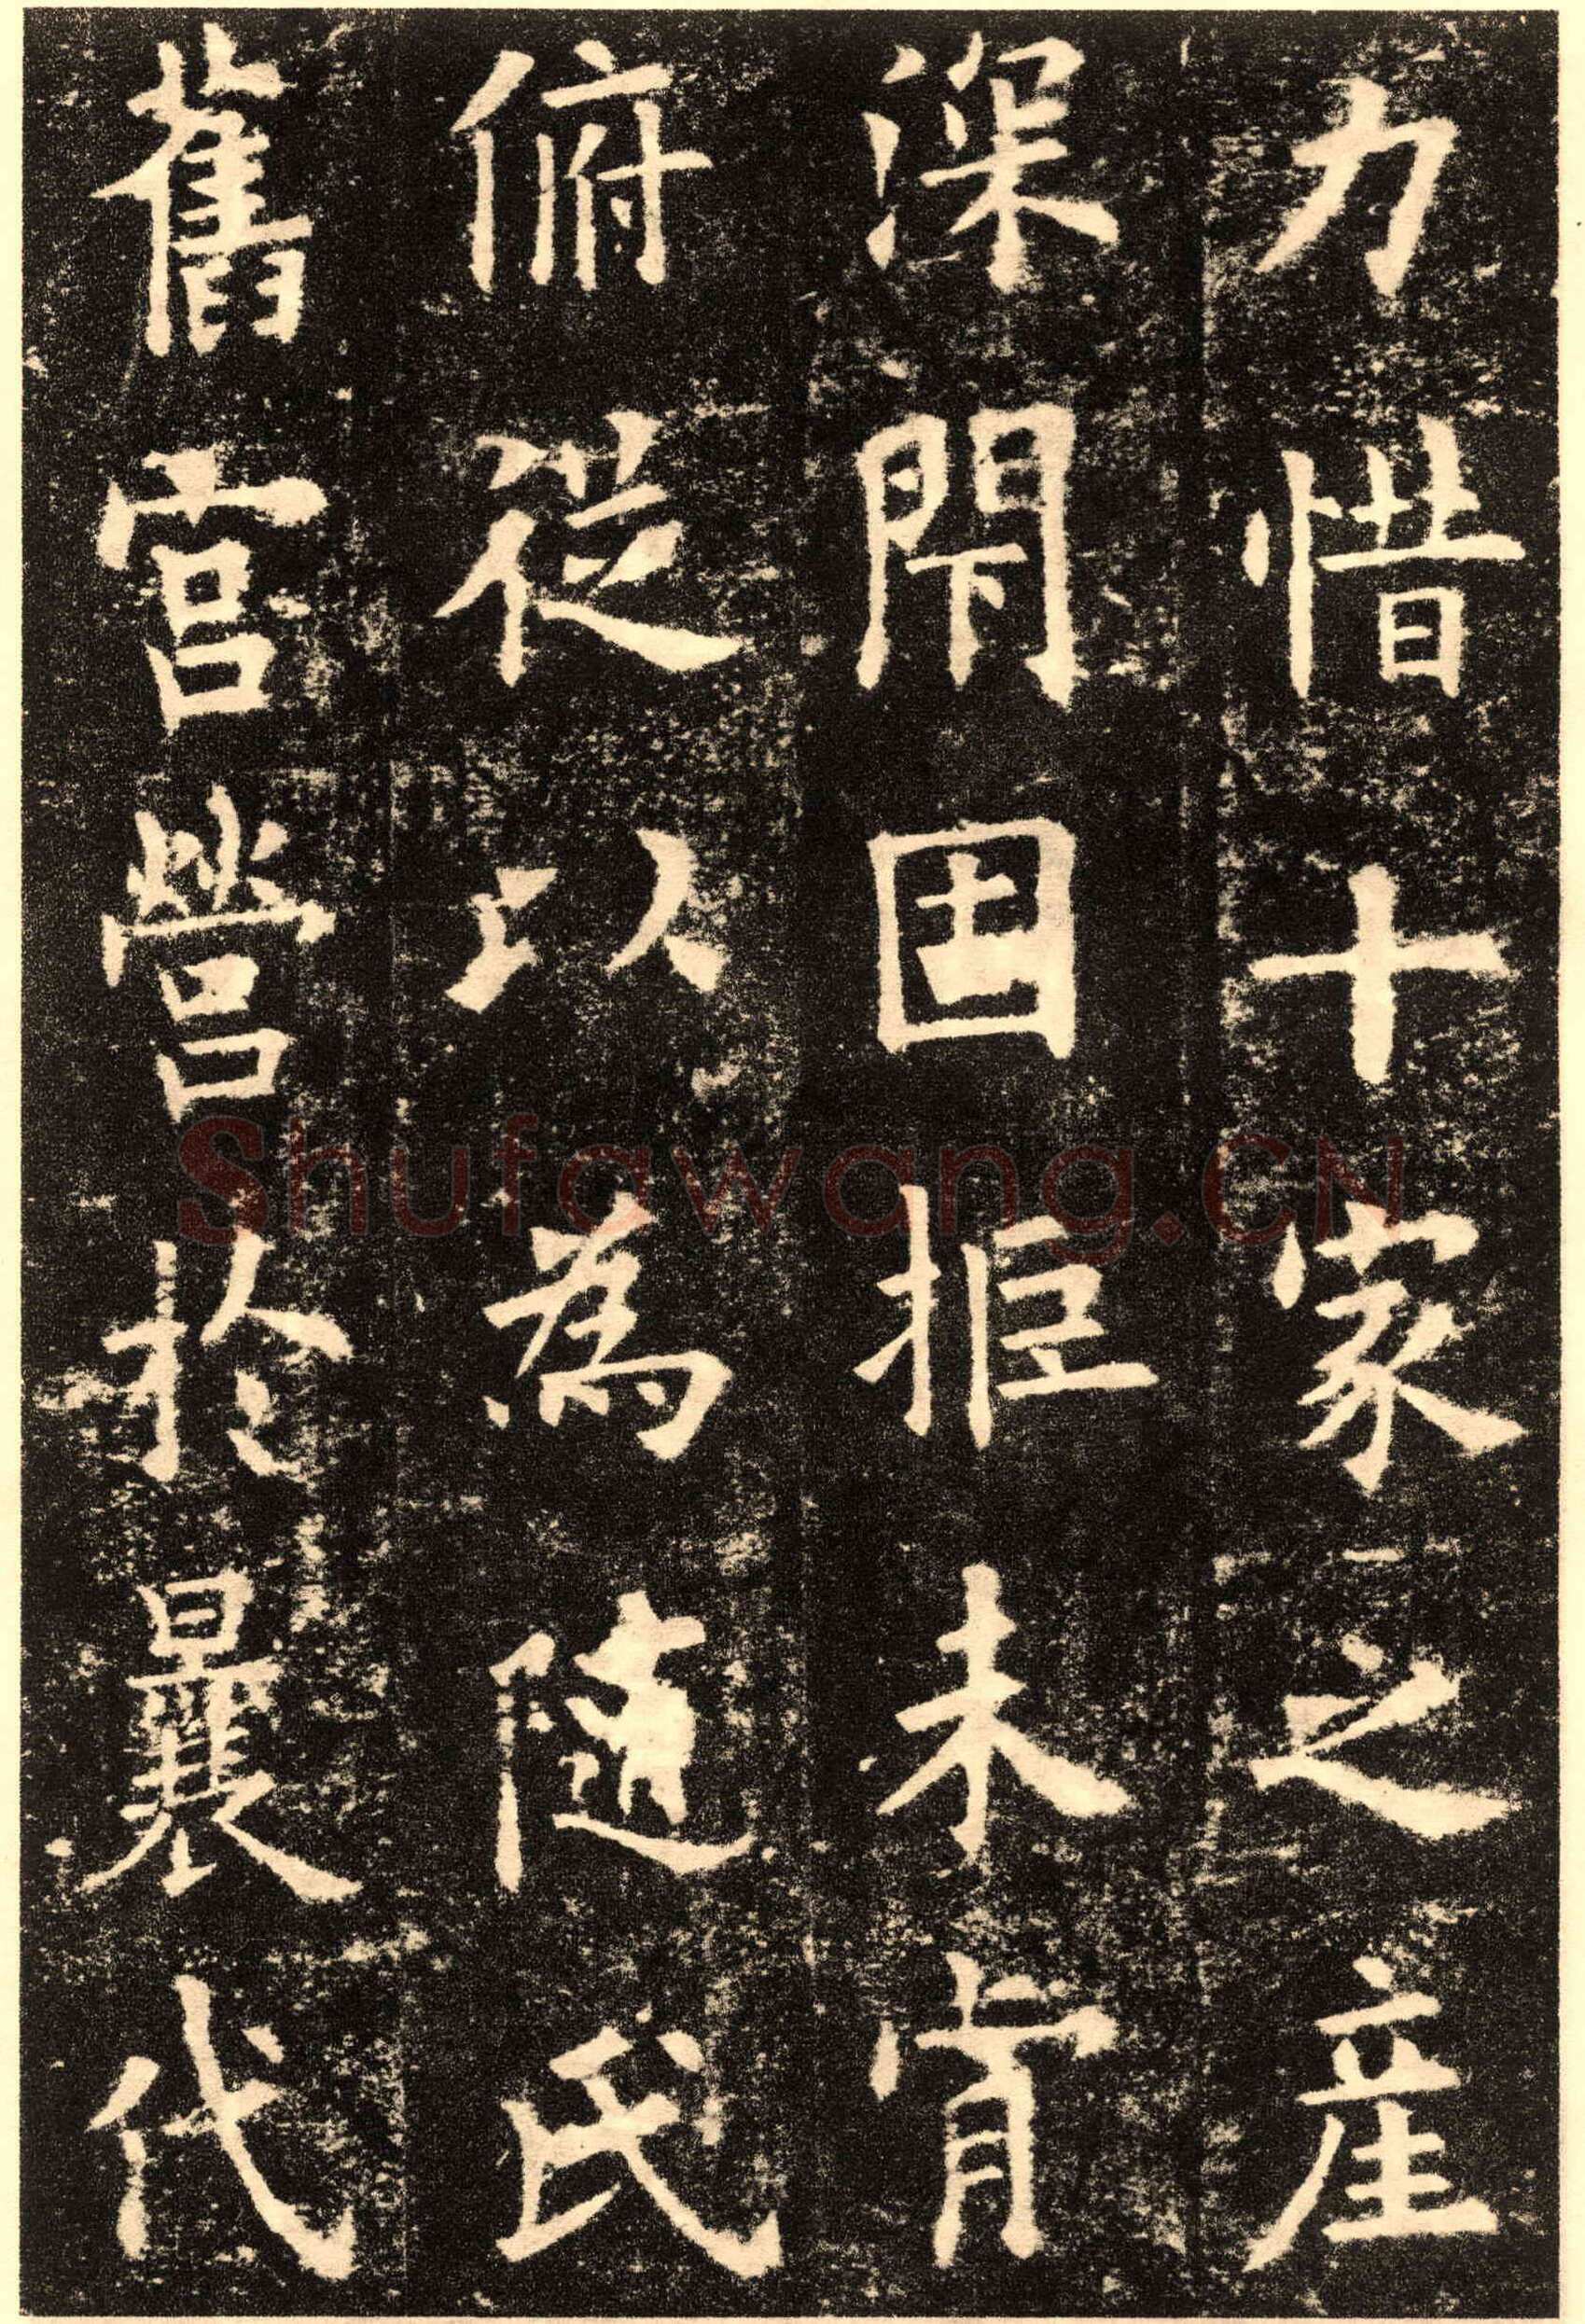 力惜十家之産
深閇固拒未肯
俯從以為隨氏
舊宮營於曩代
Shufawang.CN